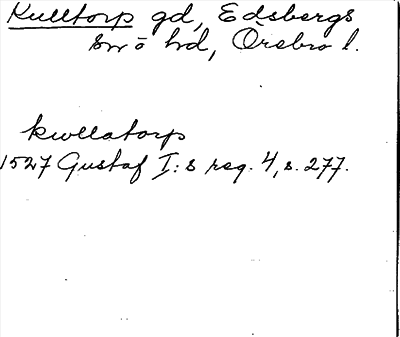 Kulltorp gd, Edsbergs
sn o hd, Örebro l.
kwllatorp
1527 Gustaf I:s reg. 4, s. 277.